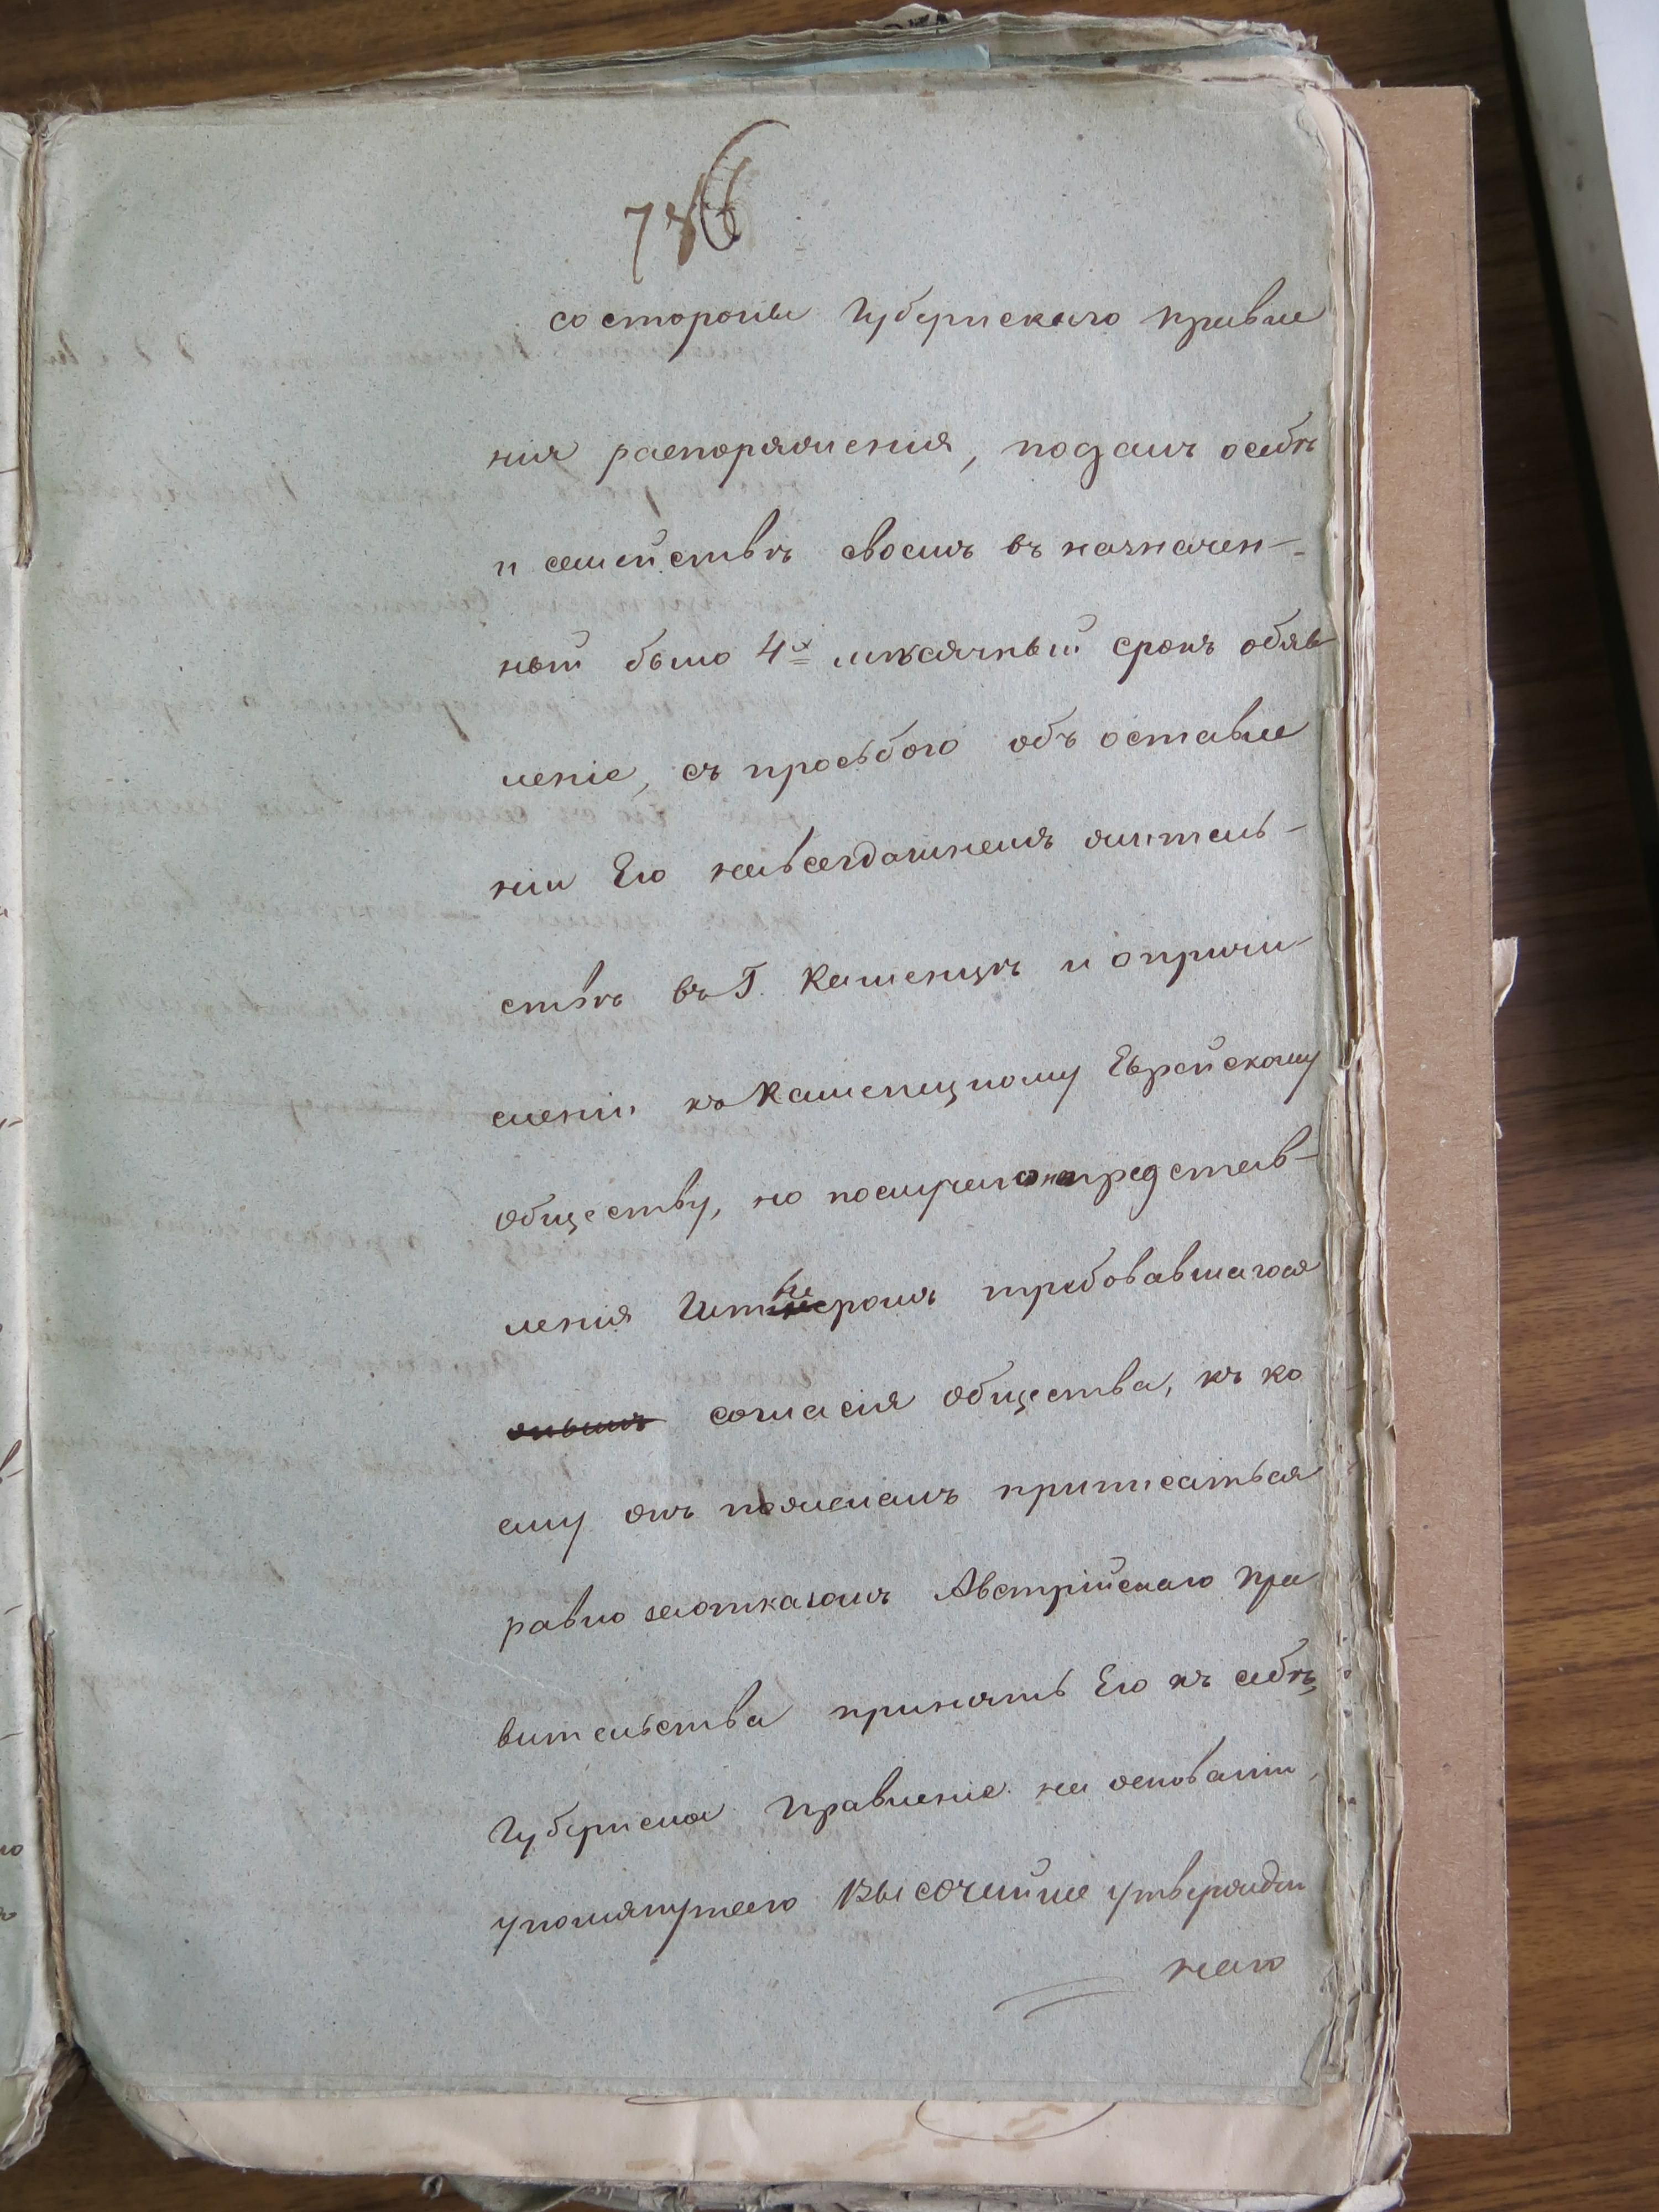 786
со стороны Губернскаго Правле
нія распоряженія, подалъ о себѣ
и семействѣ своемъ въ назначен-
ный было 4х мѣсячный срокъ объяв
леніе, съ просьбою объ оставле
ніи Его навсегдашнемъ житель-
ствѣ въ Г. Каменцѣ и о причи-
сленіи къ Каменецкому Еврейскому
обществу, но по случаю не представ-
ленія требовавшагося
согласія общества, къ ко
ему онъ пожелалъ приписаться
равно за отказомъ Австрійскаго Пра
вительства принять Его къ себѣ,
Губернское Правленіе на основаніи,
упомянутаго Высочайше утвержден
наго